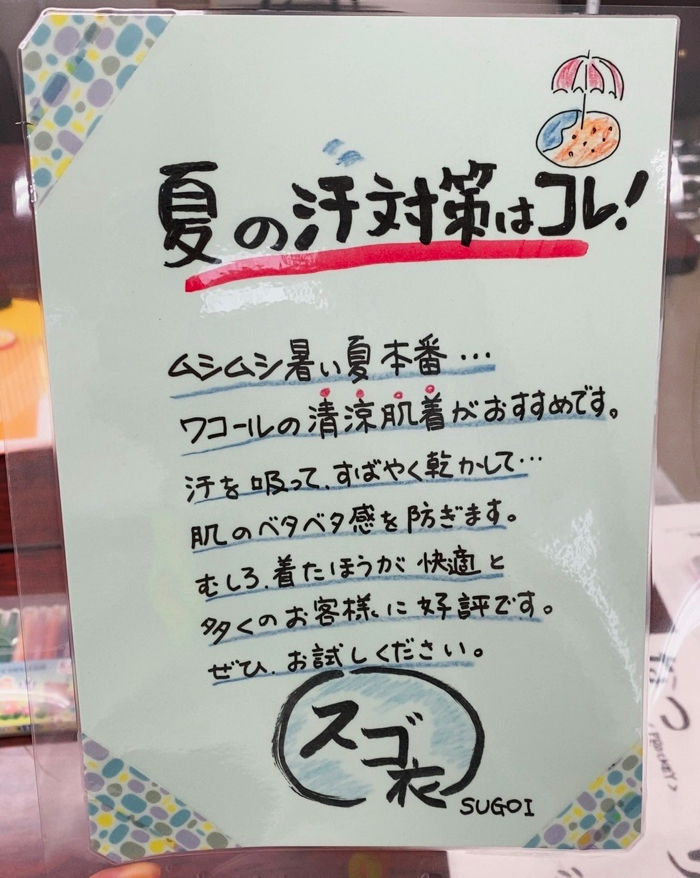 夏の汗対策はコレ!
ムシムシ暑い夏本番…
ワコールの清涼肌着がおすすめです。
汗を吸って、すばやく乾かして…
肌のベタベタ感を防ぎます。
むしろ、着たほうが快適と
多くのお客様に好評です。
ぜひ、お試しください。
スゴ衣
SUGOI